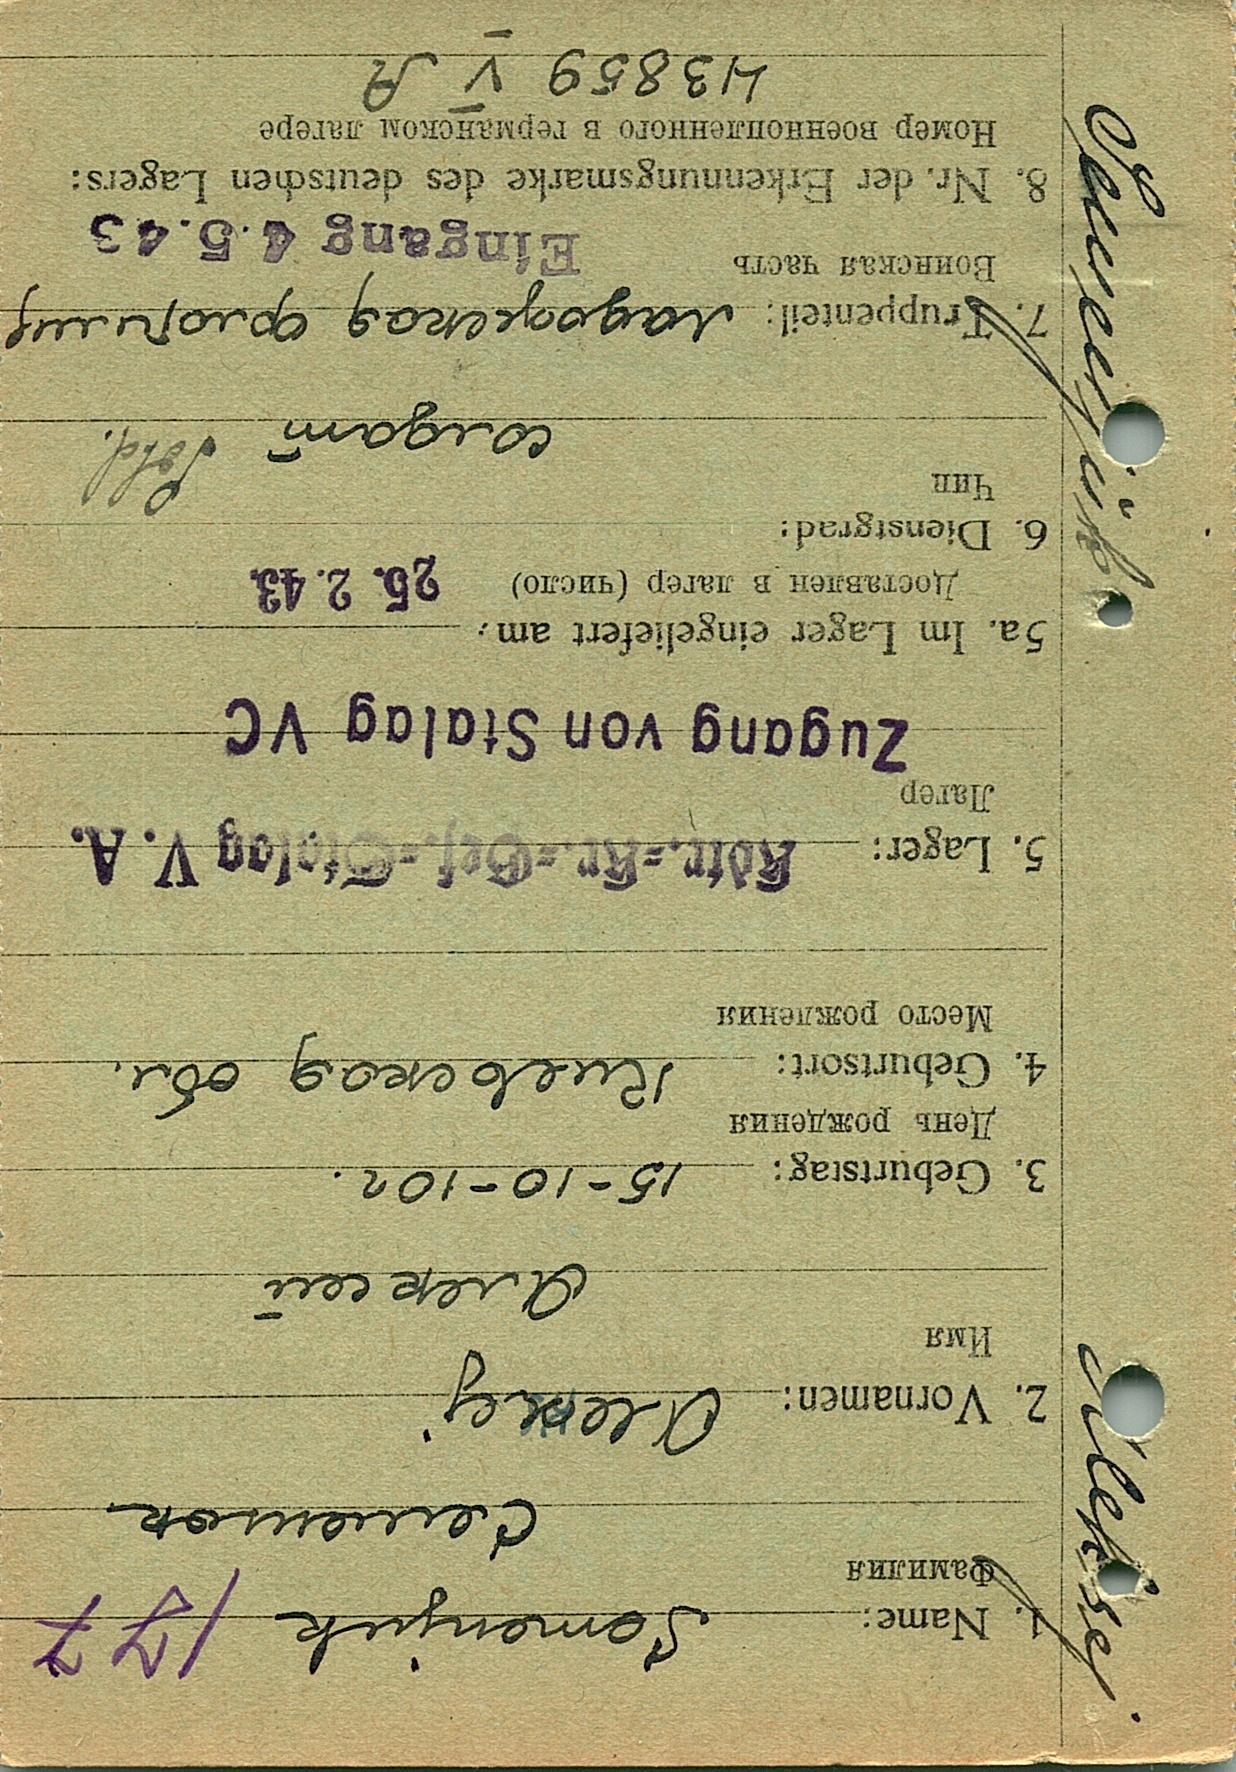 1. Name: Semenjuk 177
Фамилия
Семенюк
2. Vornamen: Aleksej
Имя
Алексей
3. Geburtstag: 15-10-10г.
День рождения
4. Geburtsort: Киевская обл.
Место рождения
5. Lager: Kdtr.=Kr.=Gef.=Stalag V. A.
Лагер
Zugang von Stalag VC
5a. Im Lager eingeliefert am:
Доставлен в лагер (число) 25. 2. 43.
6. Dienstgrad:
Чин
солдат Sold.
7. Truppenteil: Ладожская флотилия
Воинская часть Eingang 4.5.43
8. Nr. der Erkennungsmarke des deutschen Lagers:
Номер военнопленного в германском лагере
43859 V A
Semenjuk Aleksej